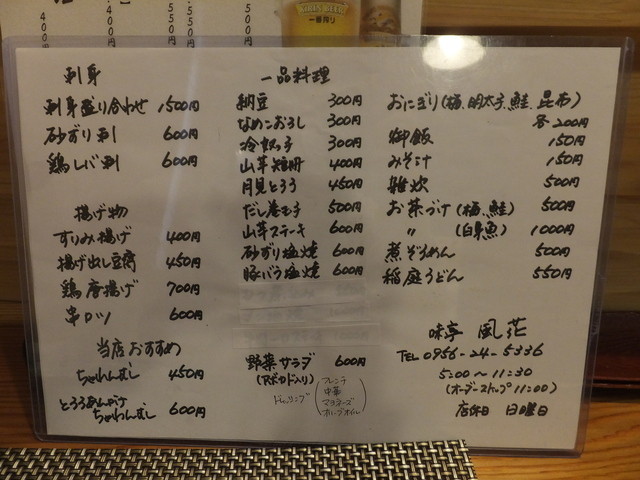 400円
550円
550円
500円
KIRIN BEER
一番搾り
刺身
刺身盛り合わせ 1,500円
砂ずり刺 600円
鶏レバ刺 600円
揚げ物
すりみ揚げ 400円
揚げ出し豆腐 450円
鶏唐揚げ 700円
串カツ 600円
当店おすすめ
ちゃわんむし 450円
とろろあんかけ
ちゃわんむし 600円
一品料理
納豆 300円
なめこおろし 300円
冷奴っ子 300円
山芋短冊 400円
月見とろろ 450円
だし巻玉子 500円
山芋ステーキ 600円
砂ずり塩焼 600円
豚バラ塩焼 600円
野菜サラダ 600円
(アボカド入り)
ドレッシング
フレンチ
中華
マヨネーズ
オリーブオイル
おにぎり(梅、明太子、鮭、昆布)
各200円
御飯 150円
みそ汁 150円
雑炊 500円
お茶づけ(梅、鮭) 500円
〃 (白身魚) 1000円
煮そうめん 500円
稲庭うどん 550円
味亭 風花
TEL 0956-24-5336
5:00〜11:30
(オーダーストップ 11:00)
店休日 日曜日